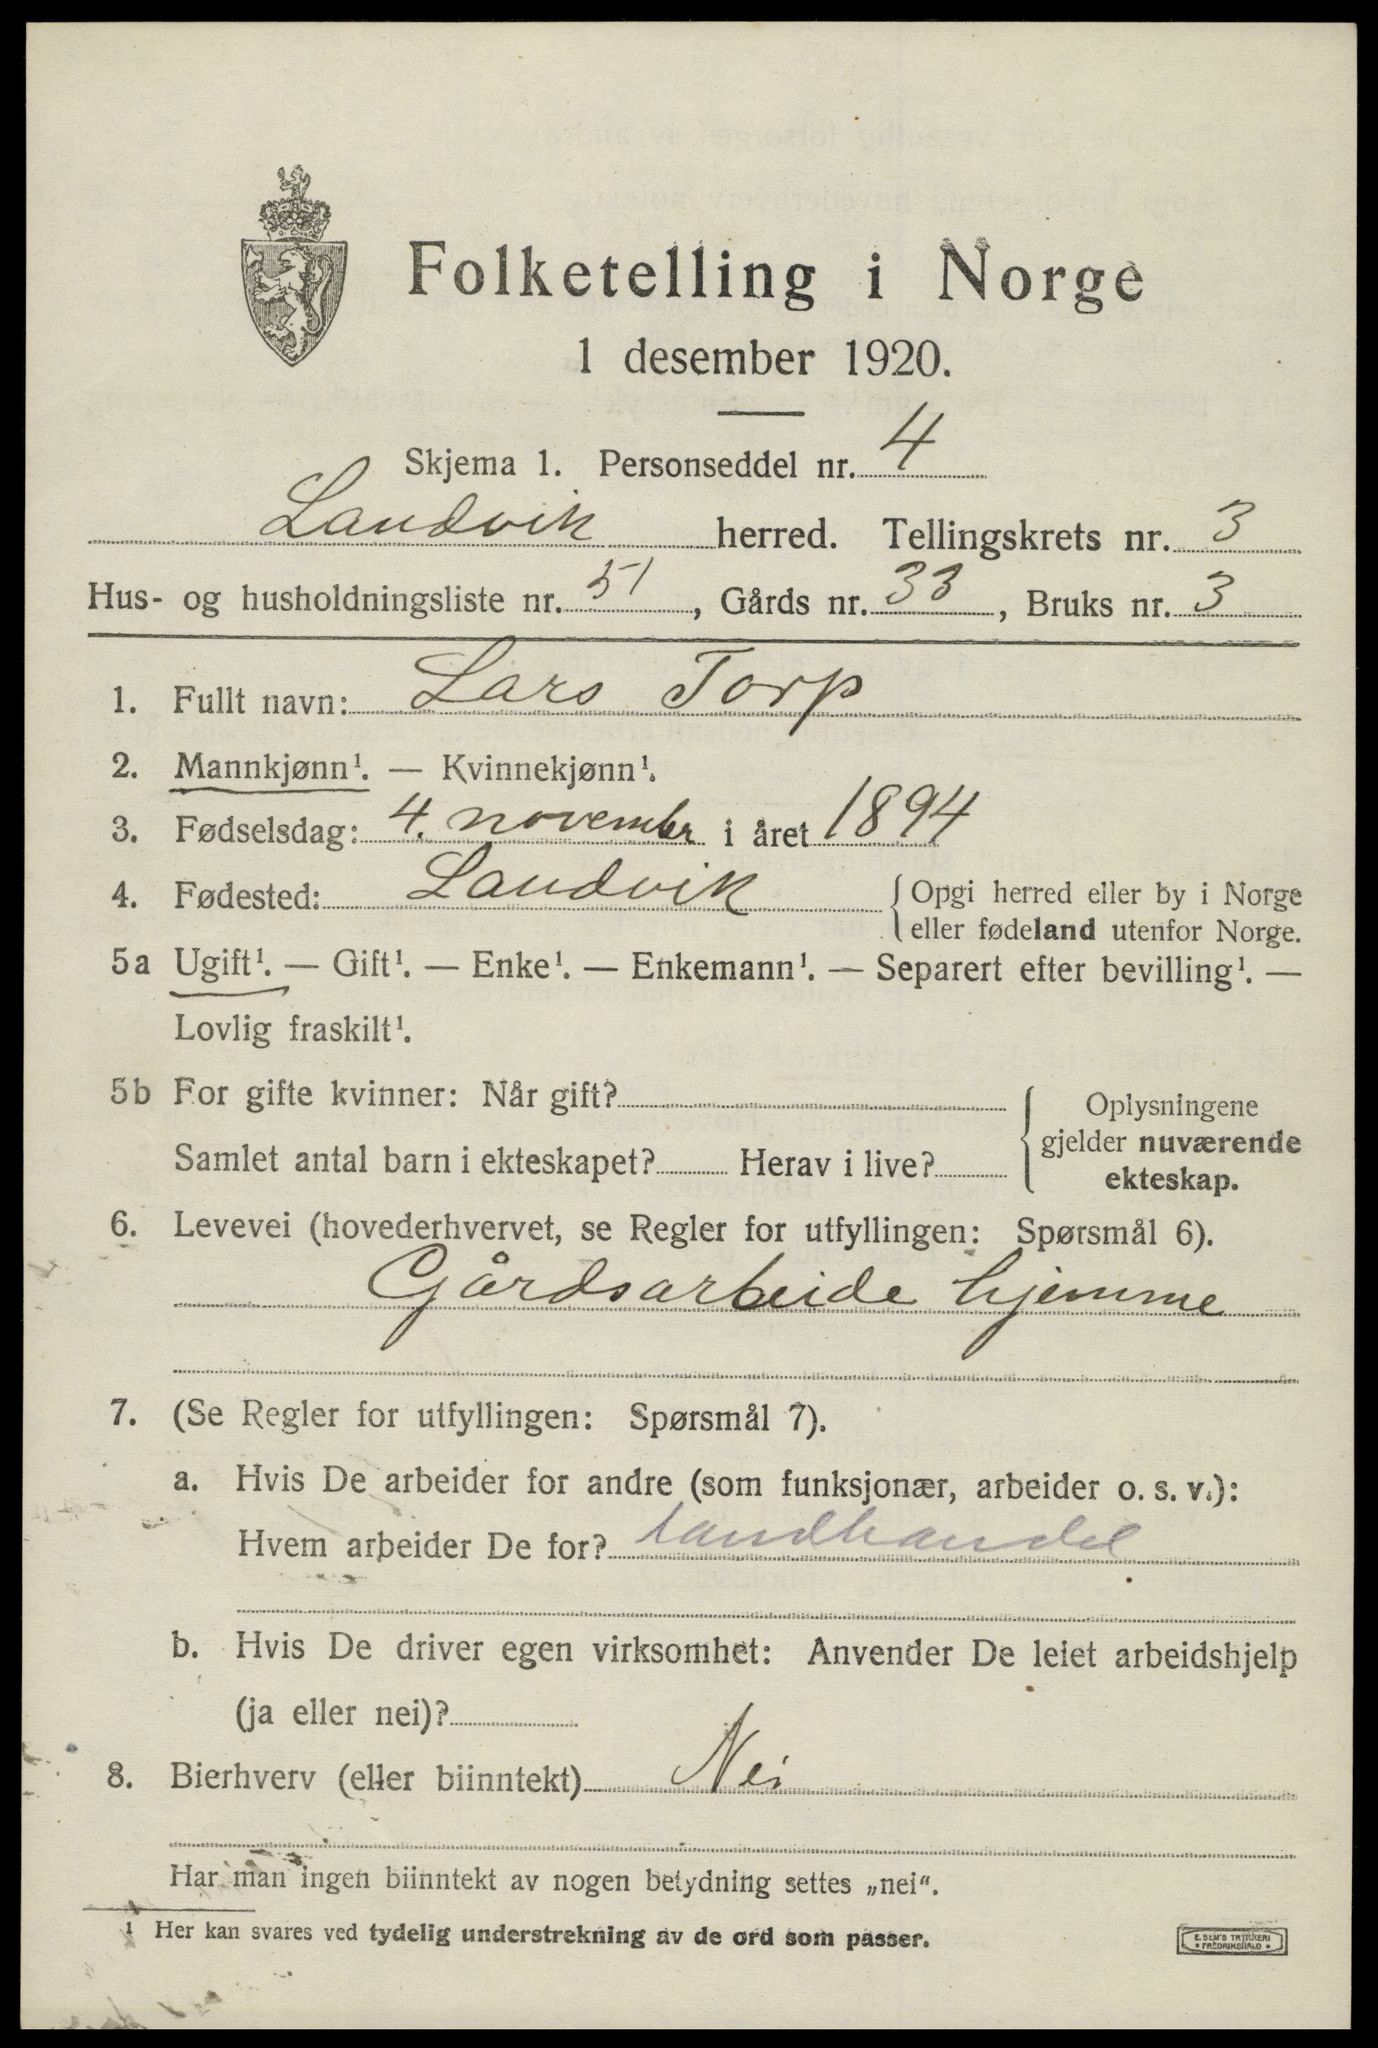 Folketelling i Norge
1 desember 1920.
Skjema 1. Personseddel nr. 4
Landvik herred. Tellingskrets nr. 3
Hus- og husholdningsliste nr. 51, Gårds nr. 33, Bruks nr. 3
1. Fullt navn: Lars Torp
2. Mannkjønn¹. — Kvinnekjønn¹.
3. Fødselsdag: 4. november i året 1894
4. Fødested: Landvik { Opgi herred eller by i Norge
eller fødeland utenfor Norge.
5a Ugift¹. — Gift¹. — Enke¹. — Enkemann¹. — Separert efter bevilling¹. —
Lovlig fraskilt¹.
5b For gifte kvinner: Når gift? { Oplysningene
gjelder nuværende
Samlet antal barn i ekteskapet? Herav i live? ekteskap.
6. Levevei (hovederhvervet, se Regler for utfyllingen: Spørsmål 6).
Gårdsarbeide hjemme
7. (Se Regler for utfyllingen: Spørsmål 7).
a. Hvis De arbeider for andre (som funksjonær, arbeider o. s. v.):
Hvem arbeider De for? landhandel
b. Hvis De driver egen virksomhet: Anvender De leiet arbeidshjelp
(ja eller nei)?
8. Bierhverv (eller biinntekt) Nei
Har man ingen biinntekt av nogen betydning settes „nei“.
¹ Her kan svares ved tydelig understrekning av de ord som passer.
E. SEM'S TRYKKERI
FREDRIKSHALD